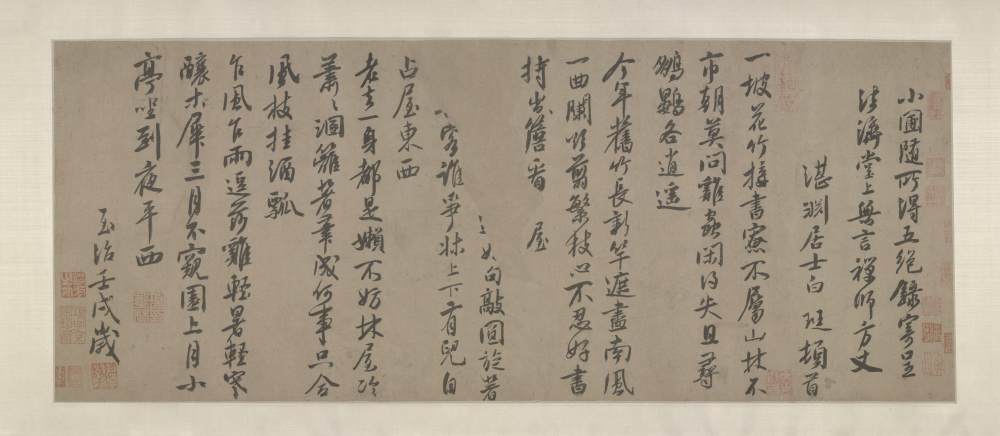 小圃随所得五絕錄寄呈
法濟堂上無言禪師方丈
湛淵居士白珽頓首
一坡花竹接書寮不屬山林不
市朝莫問雞蟲閑得失且尋
鵬鷃各逍遥
今年舊竹長新竿遮盡南風
一曲闌欲剪繁枝心不忍好書
持出簷看 屋
向敲圓旋著
客誰爭牀上下育兒自
占屋東西
老去一身都是嬾不妨林屋冷
蕭々 成何事只合
風枝挂酒瓢
乍風乍雨 輕暑輕寒
釀木犀三月不窺園上月小
亭坐到夜平西
至治壬戌歲